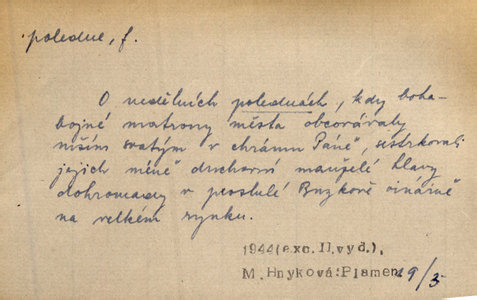 poledne, f.
O nedělních polednách, kdy boha-
bojné matrony města obcovávaly
mším svatým v chrámu Páně, sestrkovali
jejich méně duchovní manželé hlavy
dohromady v proslulé Buzkově vinárně
na velkém rynku.
1944(exc. II.vyd.),
M. Hnyková:Plamen 19/5